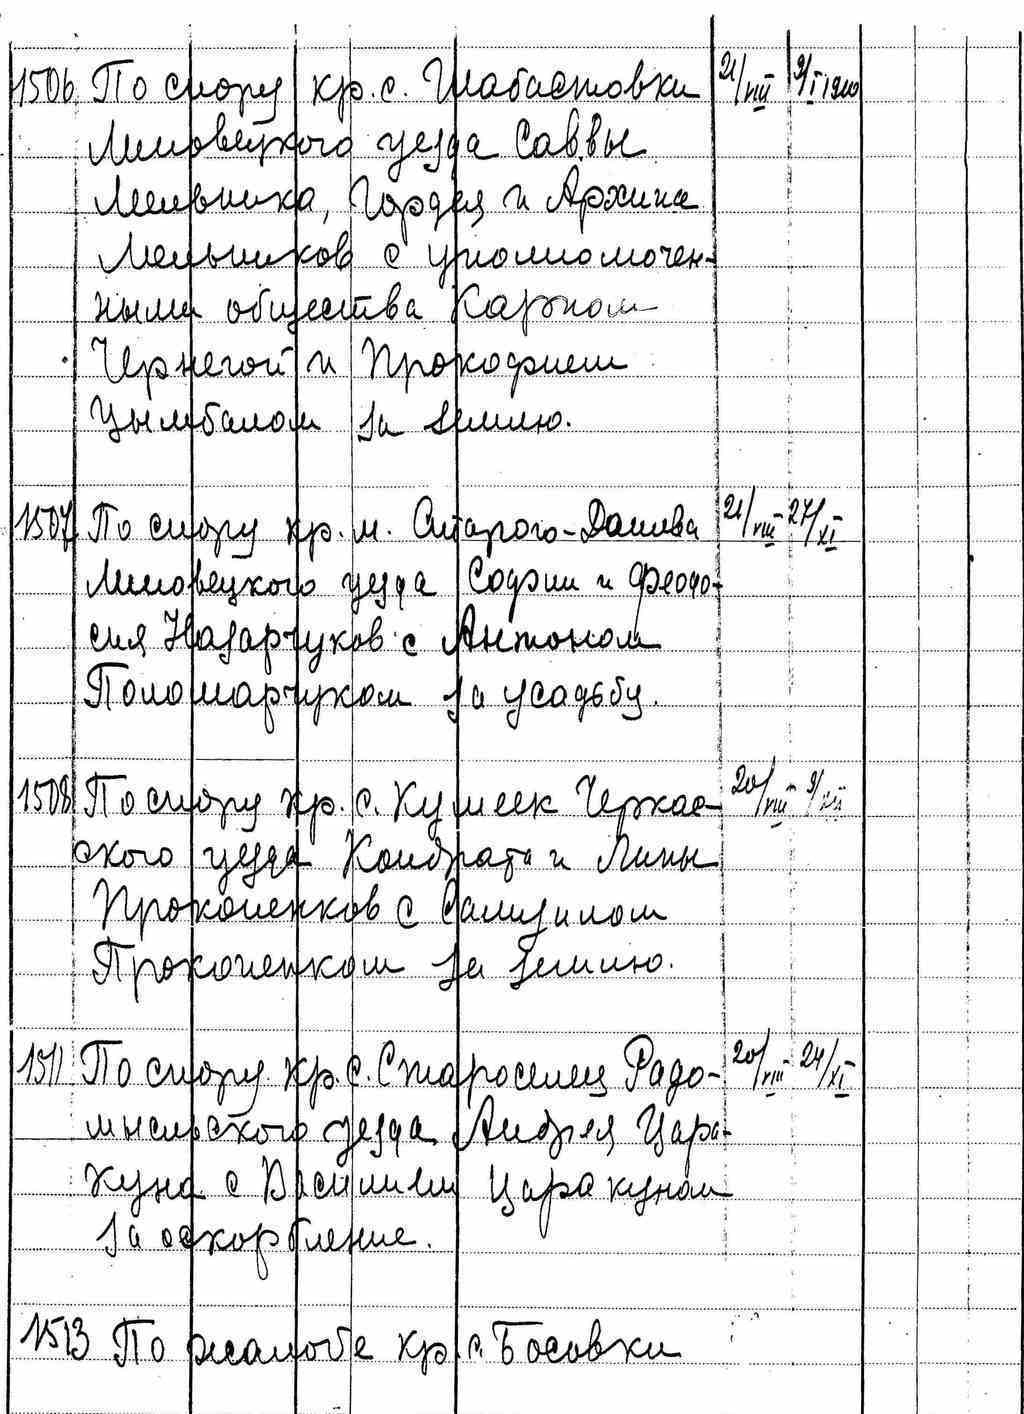 1506 По спору кр. с. Шабастовки 21/VIII 9/I 1910
Липовецкого уезда Саввы
Мельника, Гордея и Архипа
Мельников с уполномочен-
ными общества Карпом
Чернегой и Прокофием
Цымбалом за землю.
1507 По спору кр. м. Старого-Дашева 21/VIII 27/XI
Липовецкого уезда Софии и Феодо-
сия Назарчуков с Антоном
Поломарчуком за усадьбу.
1508 По спору кр. с. Кумеек Черкас- 20/VIII 9/XII
ского уезда Кондрата и
Прокопенков с Самуилом
Прокопенком за землю.
1511 По спору кр. с. Староселец Радо- 20/VIII 24/XI
мысльского уезда Андрея Цара-
куна с Василием Царакуном
за оскорбление.
1513 По жалобе кр. с. Босовки